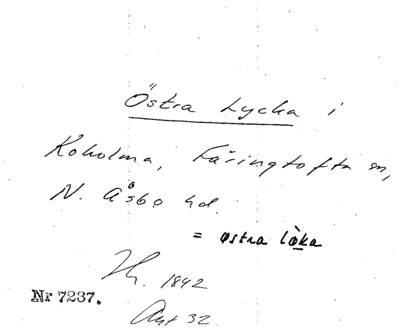 Östra Lycka i
Koholma, Färingtofta sn,
N. Åsbo hd.
= østra lẁka
Th. 1892
Nr 7237.
Avt 32